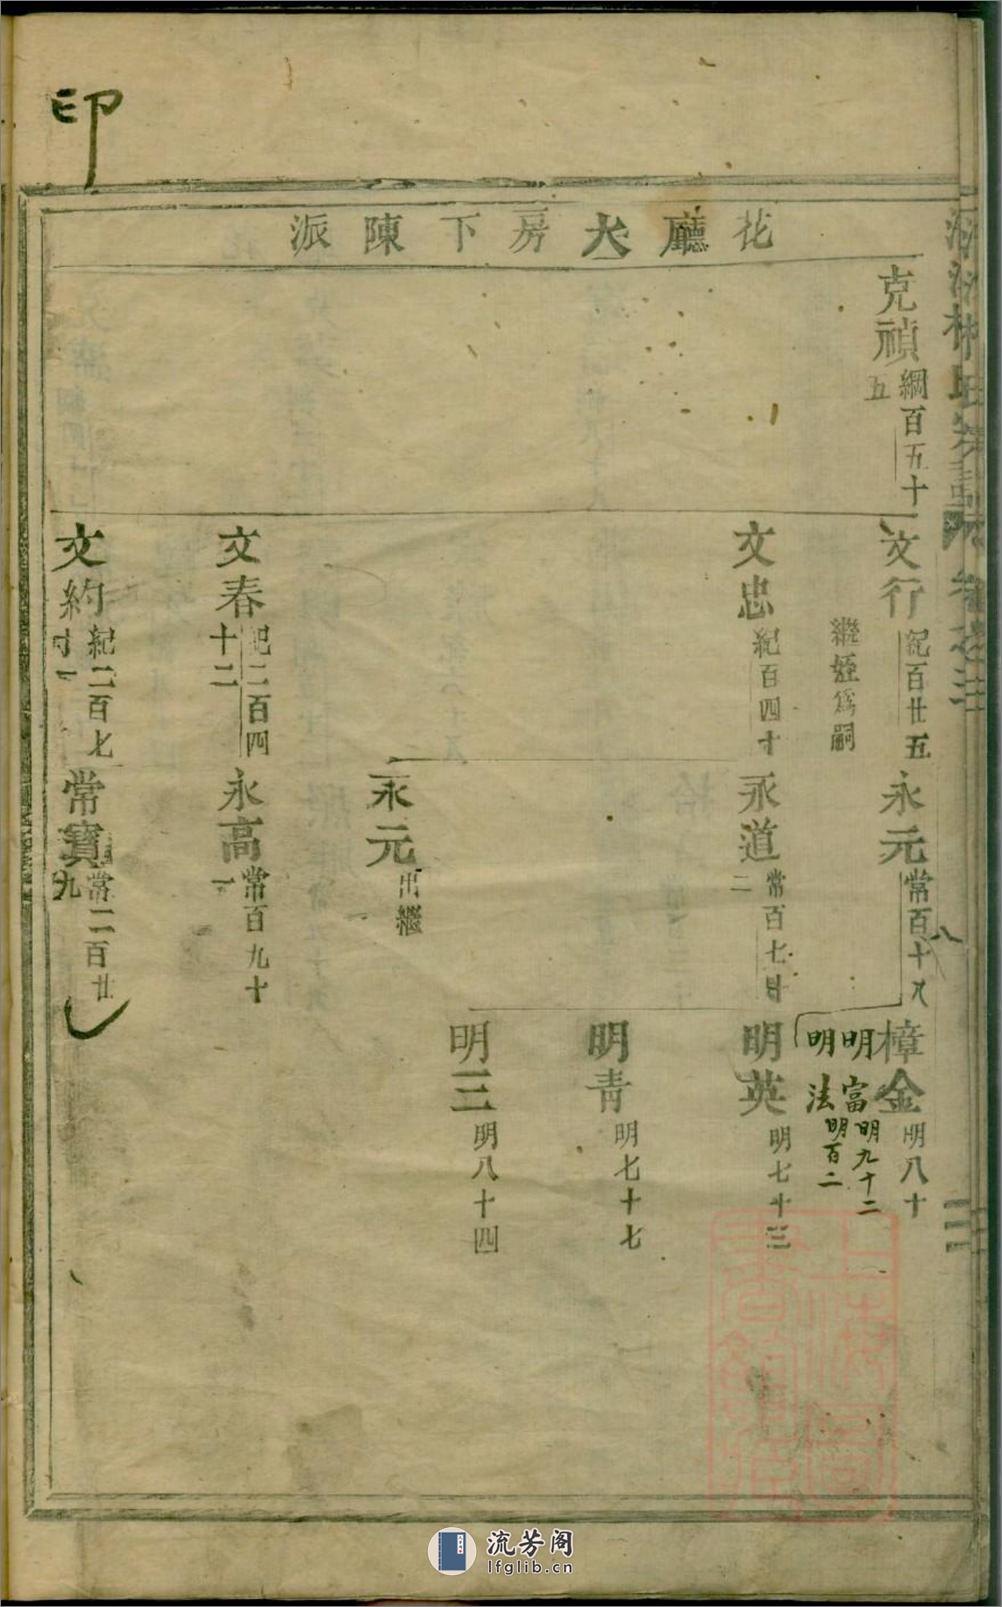 印
花廳大房下陳派
克禎 綱百五十五
文行 紀百廿五
繼姪爲嗣
文忠 紀百四十
文春 紀二百四十二
文約 紀二百七十一
永元 常百十八
八
永道 常百七十二
永元 出繼
永高 常百九十一
常寶 常二百廿九
樟金 明八十
明富 明九十二
明法 明百二
明英 明七十三
明青 明七十七
明三 明八十四
林氏宗譜
卷之
上海圖書館藏
流芳阁
lfglib.cn